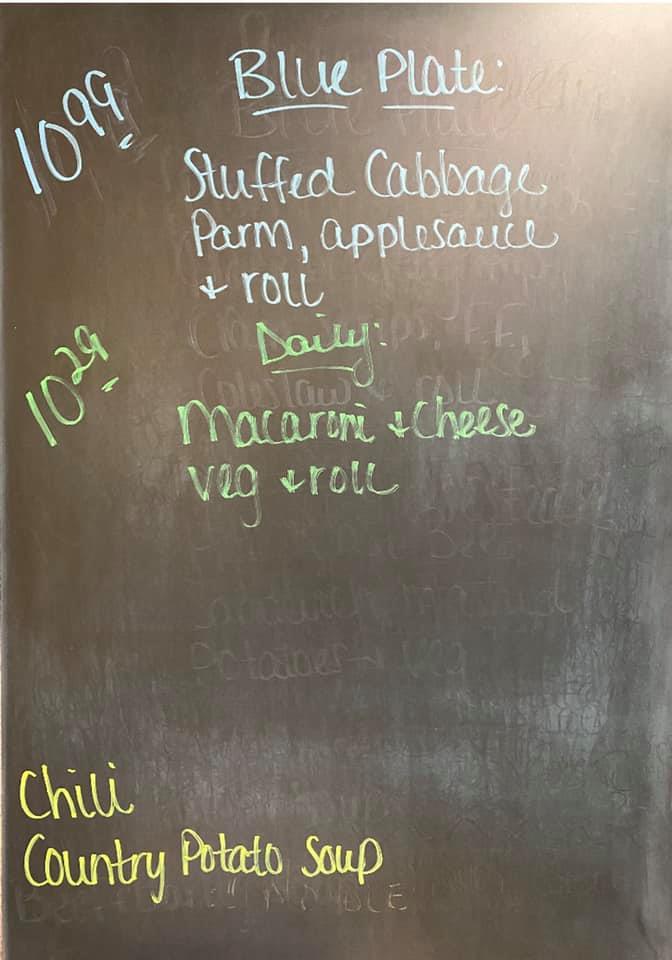 Blue Plate:
10.99
Stuffed Cabbage
Parm, applesauce
+ roll
Daily:
10.29
Macaroni + Cheese
Veg + roll
Chili
Country Potato Soup